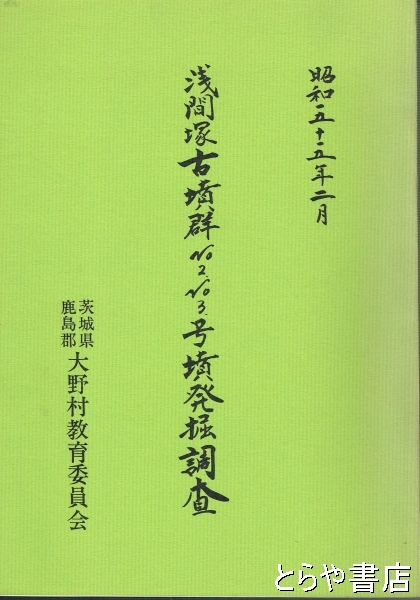 昭和五十五年二月
浅間塚古墳群No2.No3.号墳発掘調査
茨城県
鹿島郡
大野村教育委員会
とらや書店